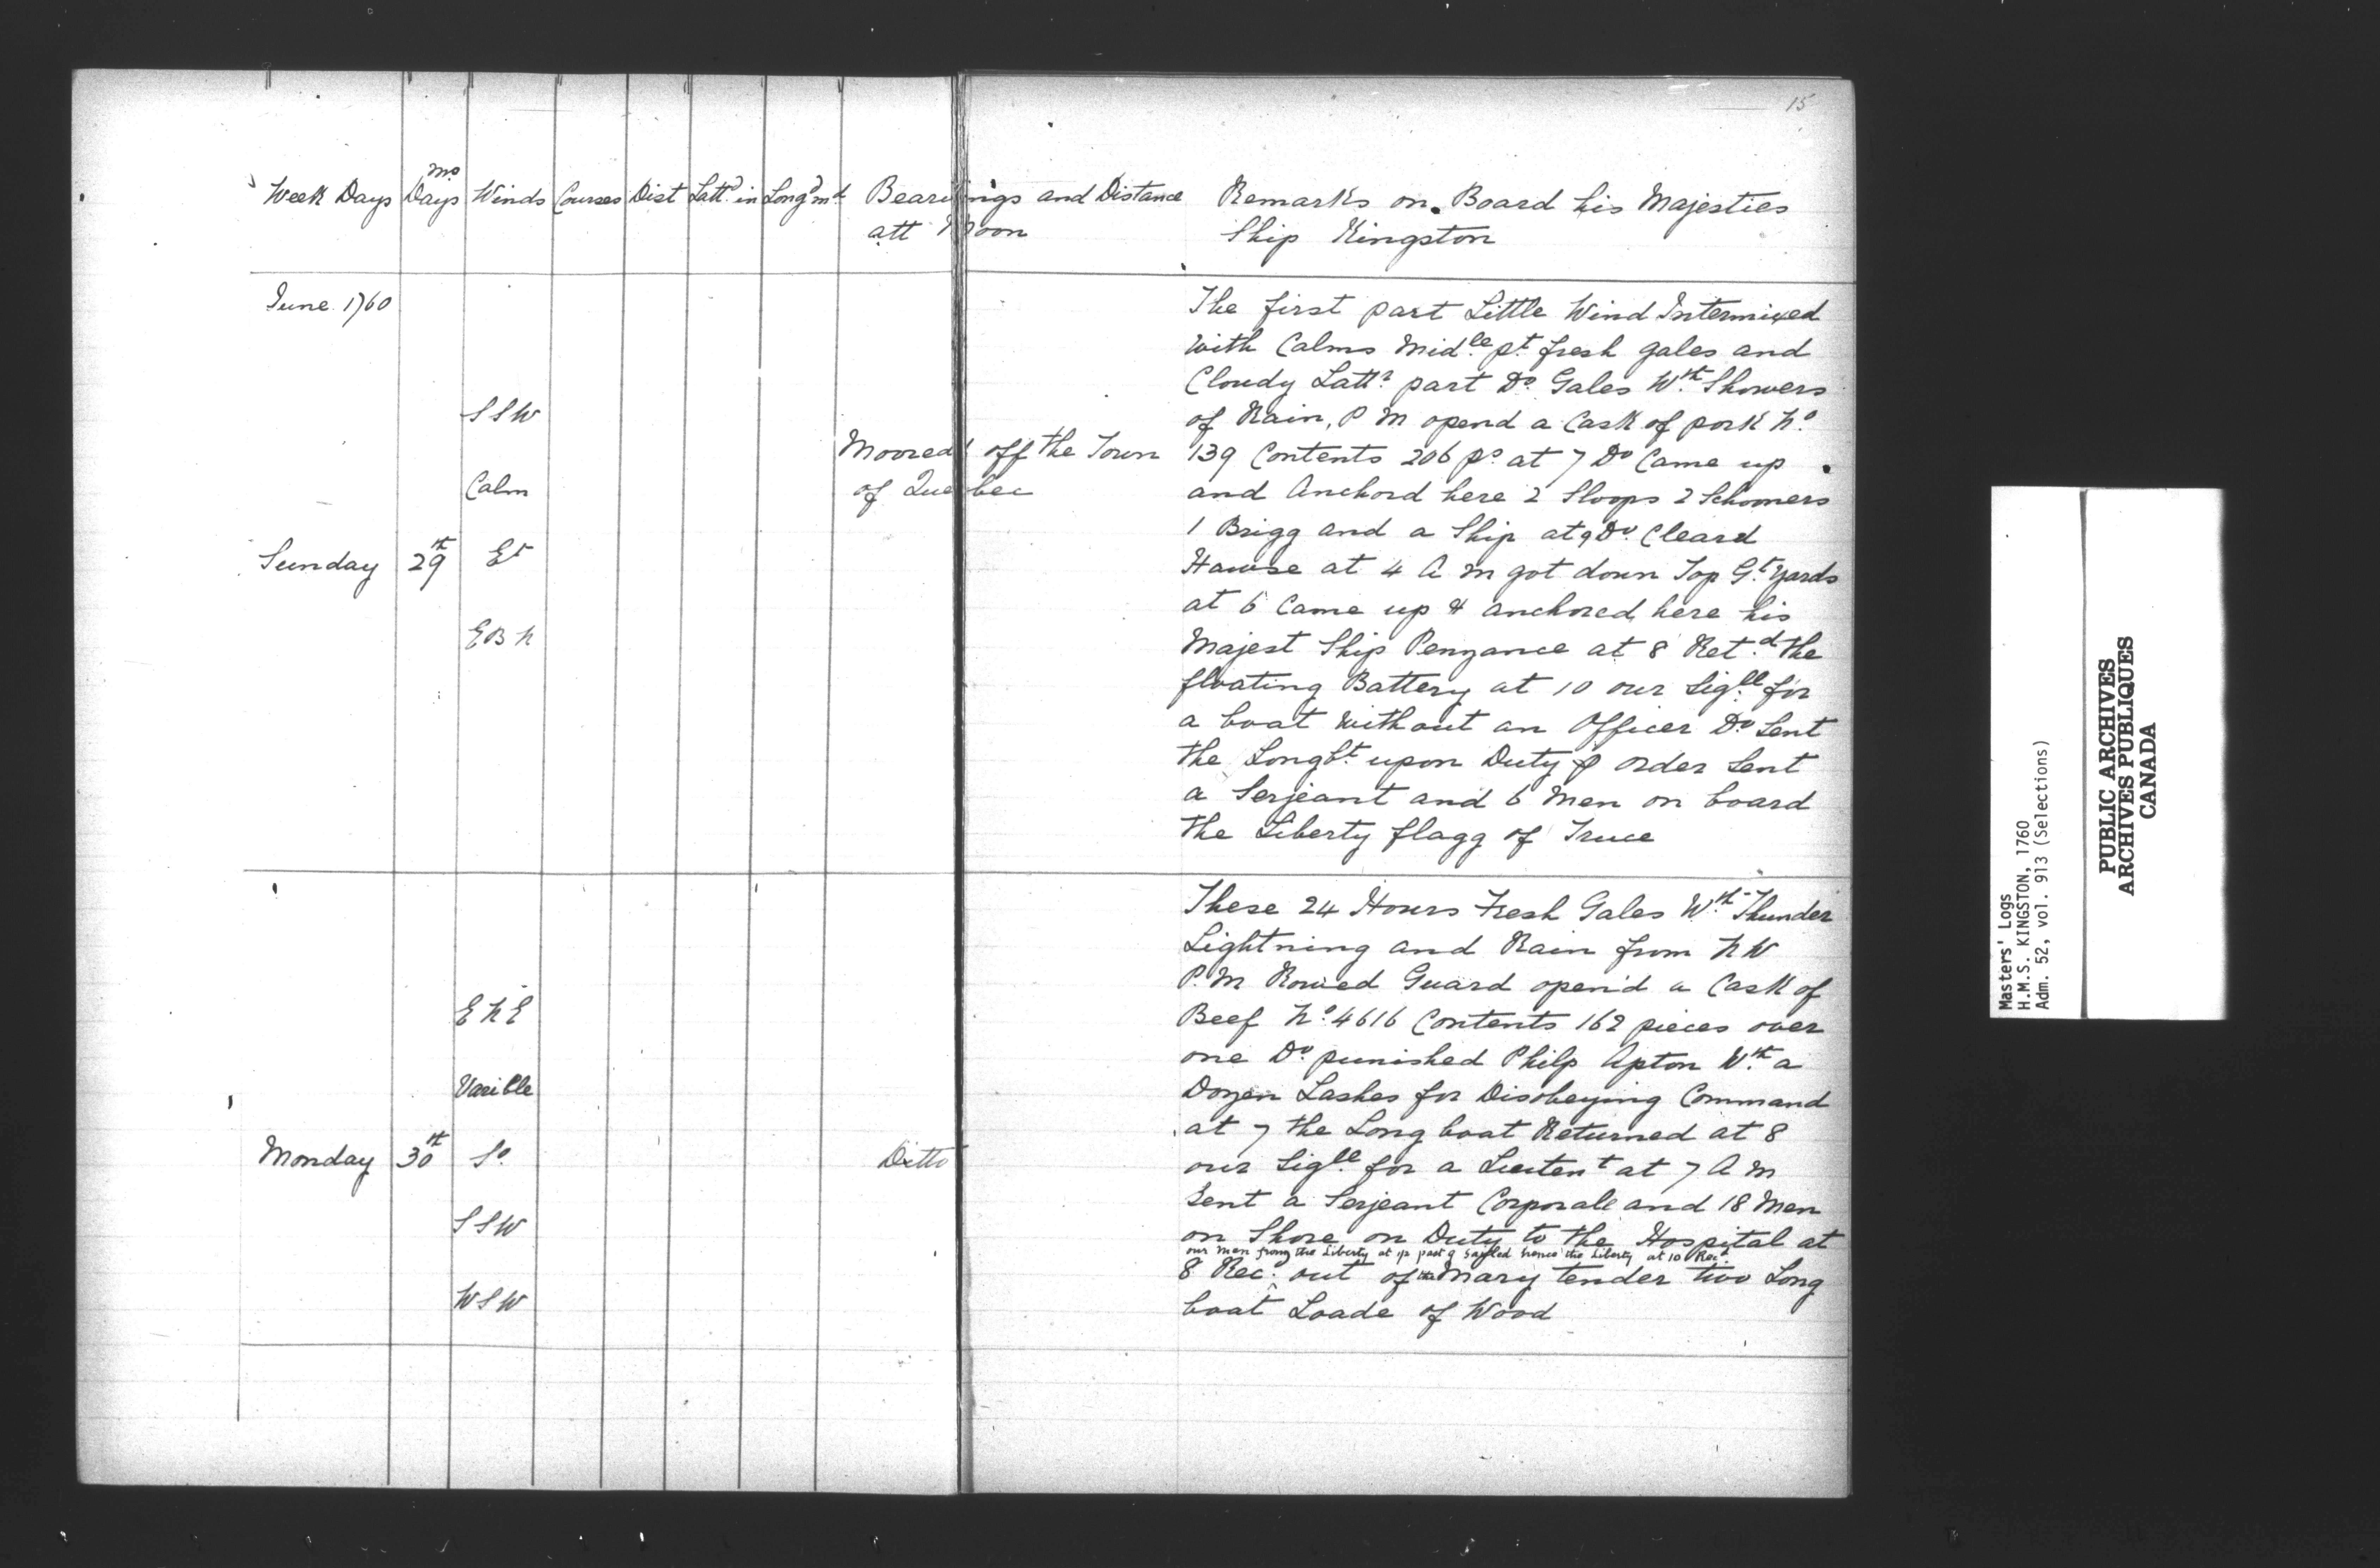 15
Week Days mo Days Winds Courses Dist Lattd in Longd in Bearings and Distance Remarks on Board his Majesties
att Noon Ship Kingston
June 1760
The first part Little Wind Intermixed
with Calms Midle pt fresh gales and
Cloudy Lattr part Do Gales Wth Showers
SSW
of Rain, P M opend a Cask of pork No
Moored off the Town
139 Contents 206 ps at 7 Do Came up
Calm
of Quebec
and Anchord here 2 Sloops 2 Schooners
1 Brigg and a Ship at 9 Do Cleard
Sunday 29th Et
Hawse at 4 A M got down Top Gt Yards
at 6 Came up & anchored here his
EBN
Majest Ship Penzance at 8 Retd the
floating Battery at 10 our Siglle for
a boat without an Officer Do Sent
the Longbt upon Duty p order Sent
a Serjeant and 6 Men on board
the Liberty flagg of Truce
These 24 Hours Fresh Gales Wth Thunder
Lightning and Rain from NW
P.M Rowed Guard open'd a Cask of
ENE
Beef No 4616 Contents 162 pieces over
one Do punished Philp Apton Wth a
Varible
Dozen Lashes for Disobeying Command
at 7 the Long boat Returned at 8
Monday 30th So Ditto
our Siglle for a Lieutent at 7 A M
Sent a Serjeant Corporall and 18 Men
SSW
on Shore on Duty to the Hospital at
our men from the Liberty at 1/2 past 9 Sayled hence the Liberty at 10 Recd
8 Recd out of the Mary tender two Long
WSW
boat Loade of Wood
Masters' Logs
H.M.S. KINGSTON, 1760
Adm. 52, vol. 913 (Selections)
PUBLIC ARCHIVES
ARCHIVES PUBLIQUES
CANADA